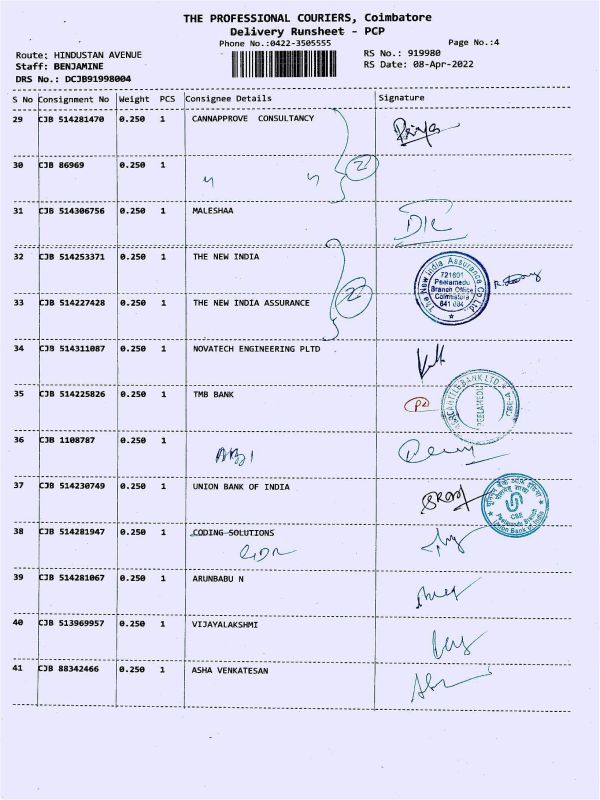 THE PROFESSIONAL COURIERS, Coimbatore
Delivery Runsheet - PCP
Phone No.:0422-3505555
Page No.:4
Route: HINDUSTAN AVENUE
RS No.: 919980
Staff: BENJAMINE
RS Date: 08-Apr-2022
DRS No.: DCJB91998004
S No Consignment No Weight PCS Consignee Details Signature
29 CJB 514281470 0.250 1 CANNAPPROVE CONSULTANCY
30 CJB 86969 0.250 1
2
31 CJB 514306756 0.250 1 MALESHAA
32 CJB 514253371 0.250 1 THE NEW INDIA
The New India Assurance Co. Ltd.
721601
Peelamedu
Branch Office
Coimbatore
641 004
33 CJB 514227428 0.250 1 THE NEW INDIA ASSURANCE
2
34 CJB 514311087 0.250 1 NOVATECH ENGINEERING PLTD
35 CJB 514225826 0.250 1 TMB BANK
MERCANTILE BANK LTD
PEELAMEDU
CBE-4
36 CJB 1108787 0.250 1
37 CJB 514230749 0.250 1 UNION BANK OF INDIA
यूनियन बैंक ऑफ इंडिया
CBE
Peelamedu Branch
Union Bank of India
38 CJB 514281947 0.250 1 CODING SOLUTIONS
39 CJB 514281067 0.250 1 ARUNBABU N
40 CJB 513969957 0.250 1 VIJAYALAKSHMI
41 CJB 88342466 0.250 1 ASHA VENKATESAN